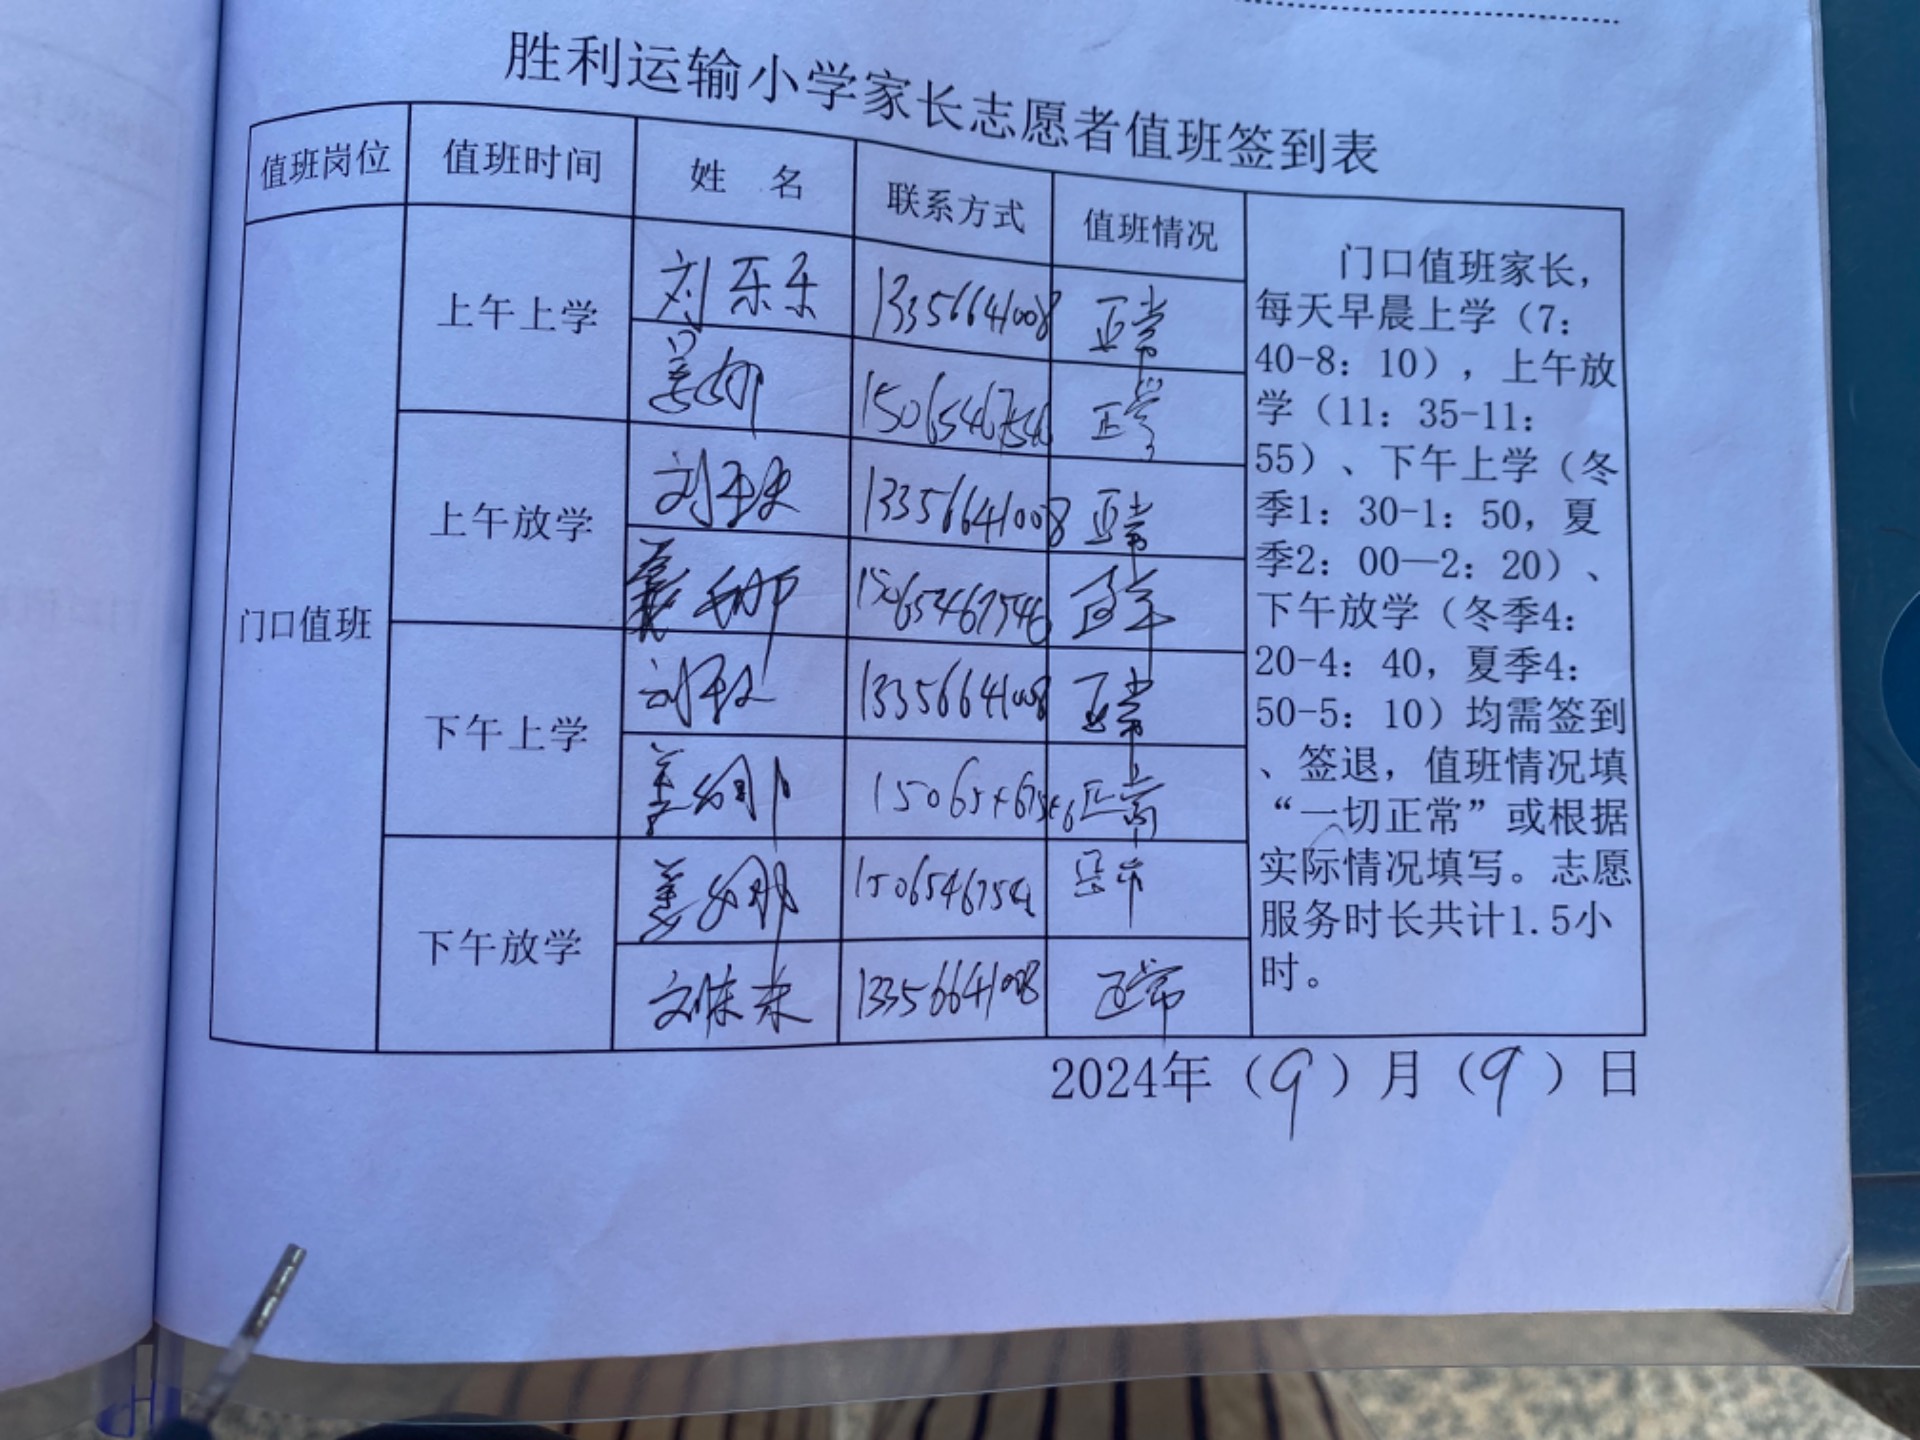 胜利运输小学家长志愿者值班签到表
值班岗位 值班时间 姓 名 联系方式 值班情况
门口值班
上午上学
刘乐乐 13356641008 正常
姜娜 15065467546 正常
上午放学
刘乐乐 13356641008 正常
姜娜 15065467546 正常
下午上学
刘乐乐 13356641008 正常
姜娜 15065467546 正常
下午放学
姜娜 15065467546 正常
刘乐乐 13356641008 正常
门口值班家长，
每天早晨上学（7：
40-8：10），上午放
学（11：35-11：
55）、下午上学（冬
季1：30-1：50，夏
季2：00—2：20）、
下午放学（冬季4：
20-4：40，夏季4：
50-5：10）均需签到
、签退，值班情况填
“一切正常”或根据
实际情况填写。志愿
服务时长共计1.5小
时。
2024年（9）月（9）日